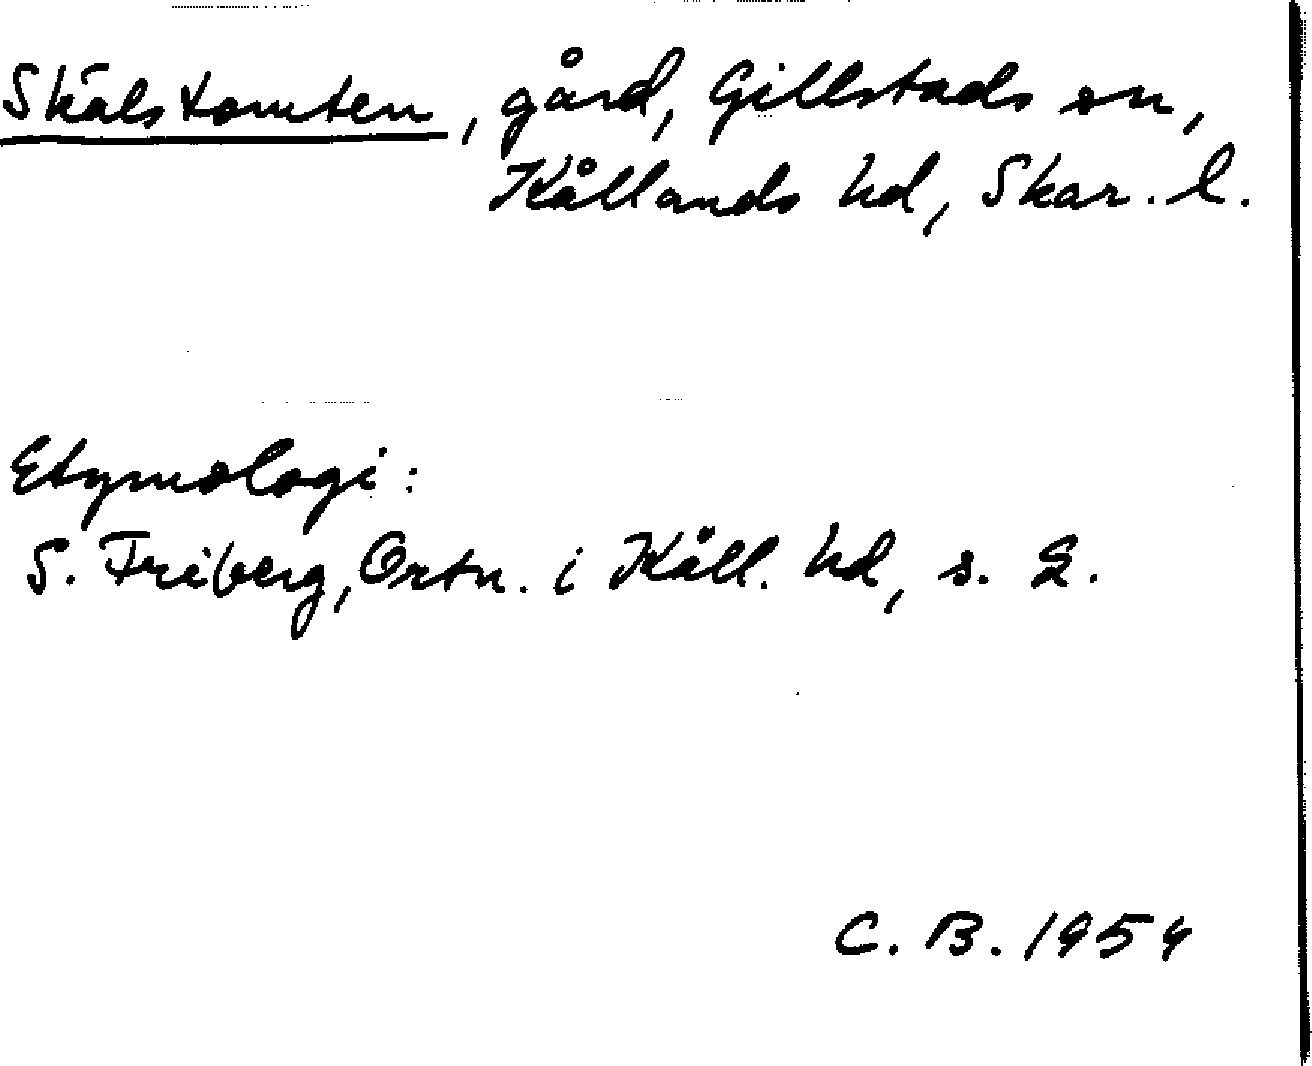 Skälstomten, gård, Gillstads sn,
Kållands hd, Skar. l.
Etymologi:
S. Friberg, Ortn. i Kåll. hd, s. 2.
C. B. 1954